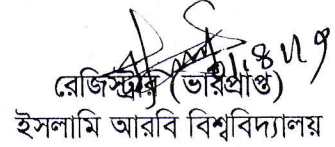 রেজিস্ট্রার (ভারপ্রাপ্ত)
ইসলামি আরবি বিশ্ববিদ্যালয়